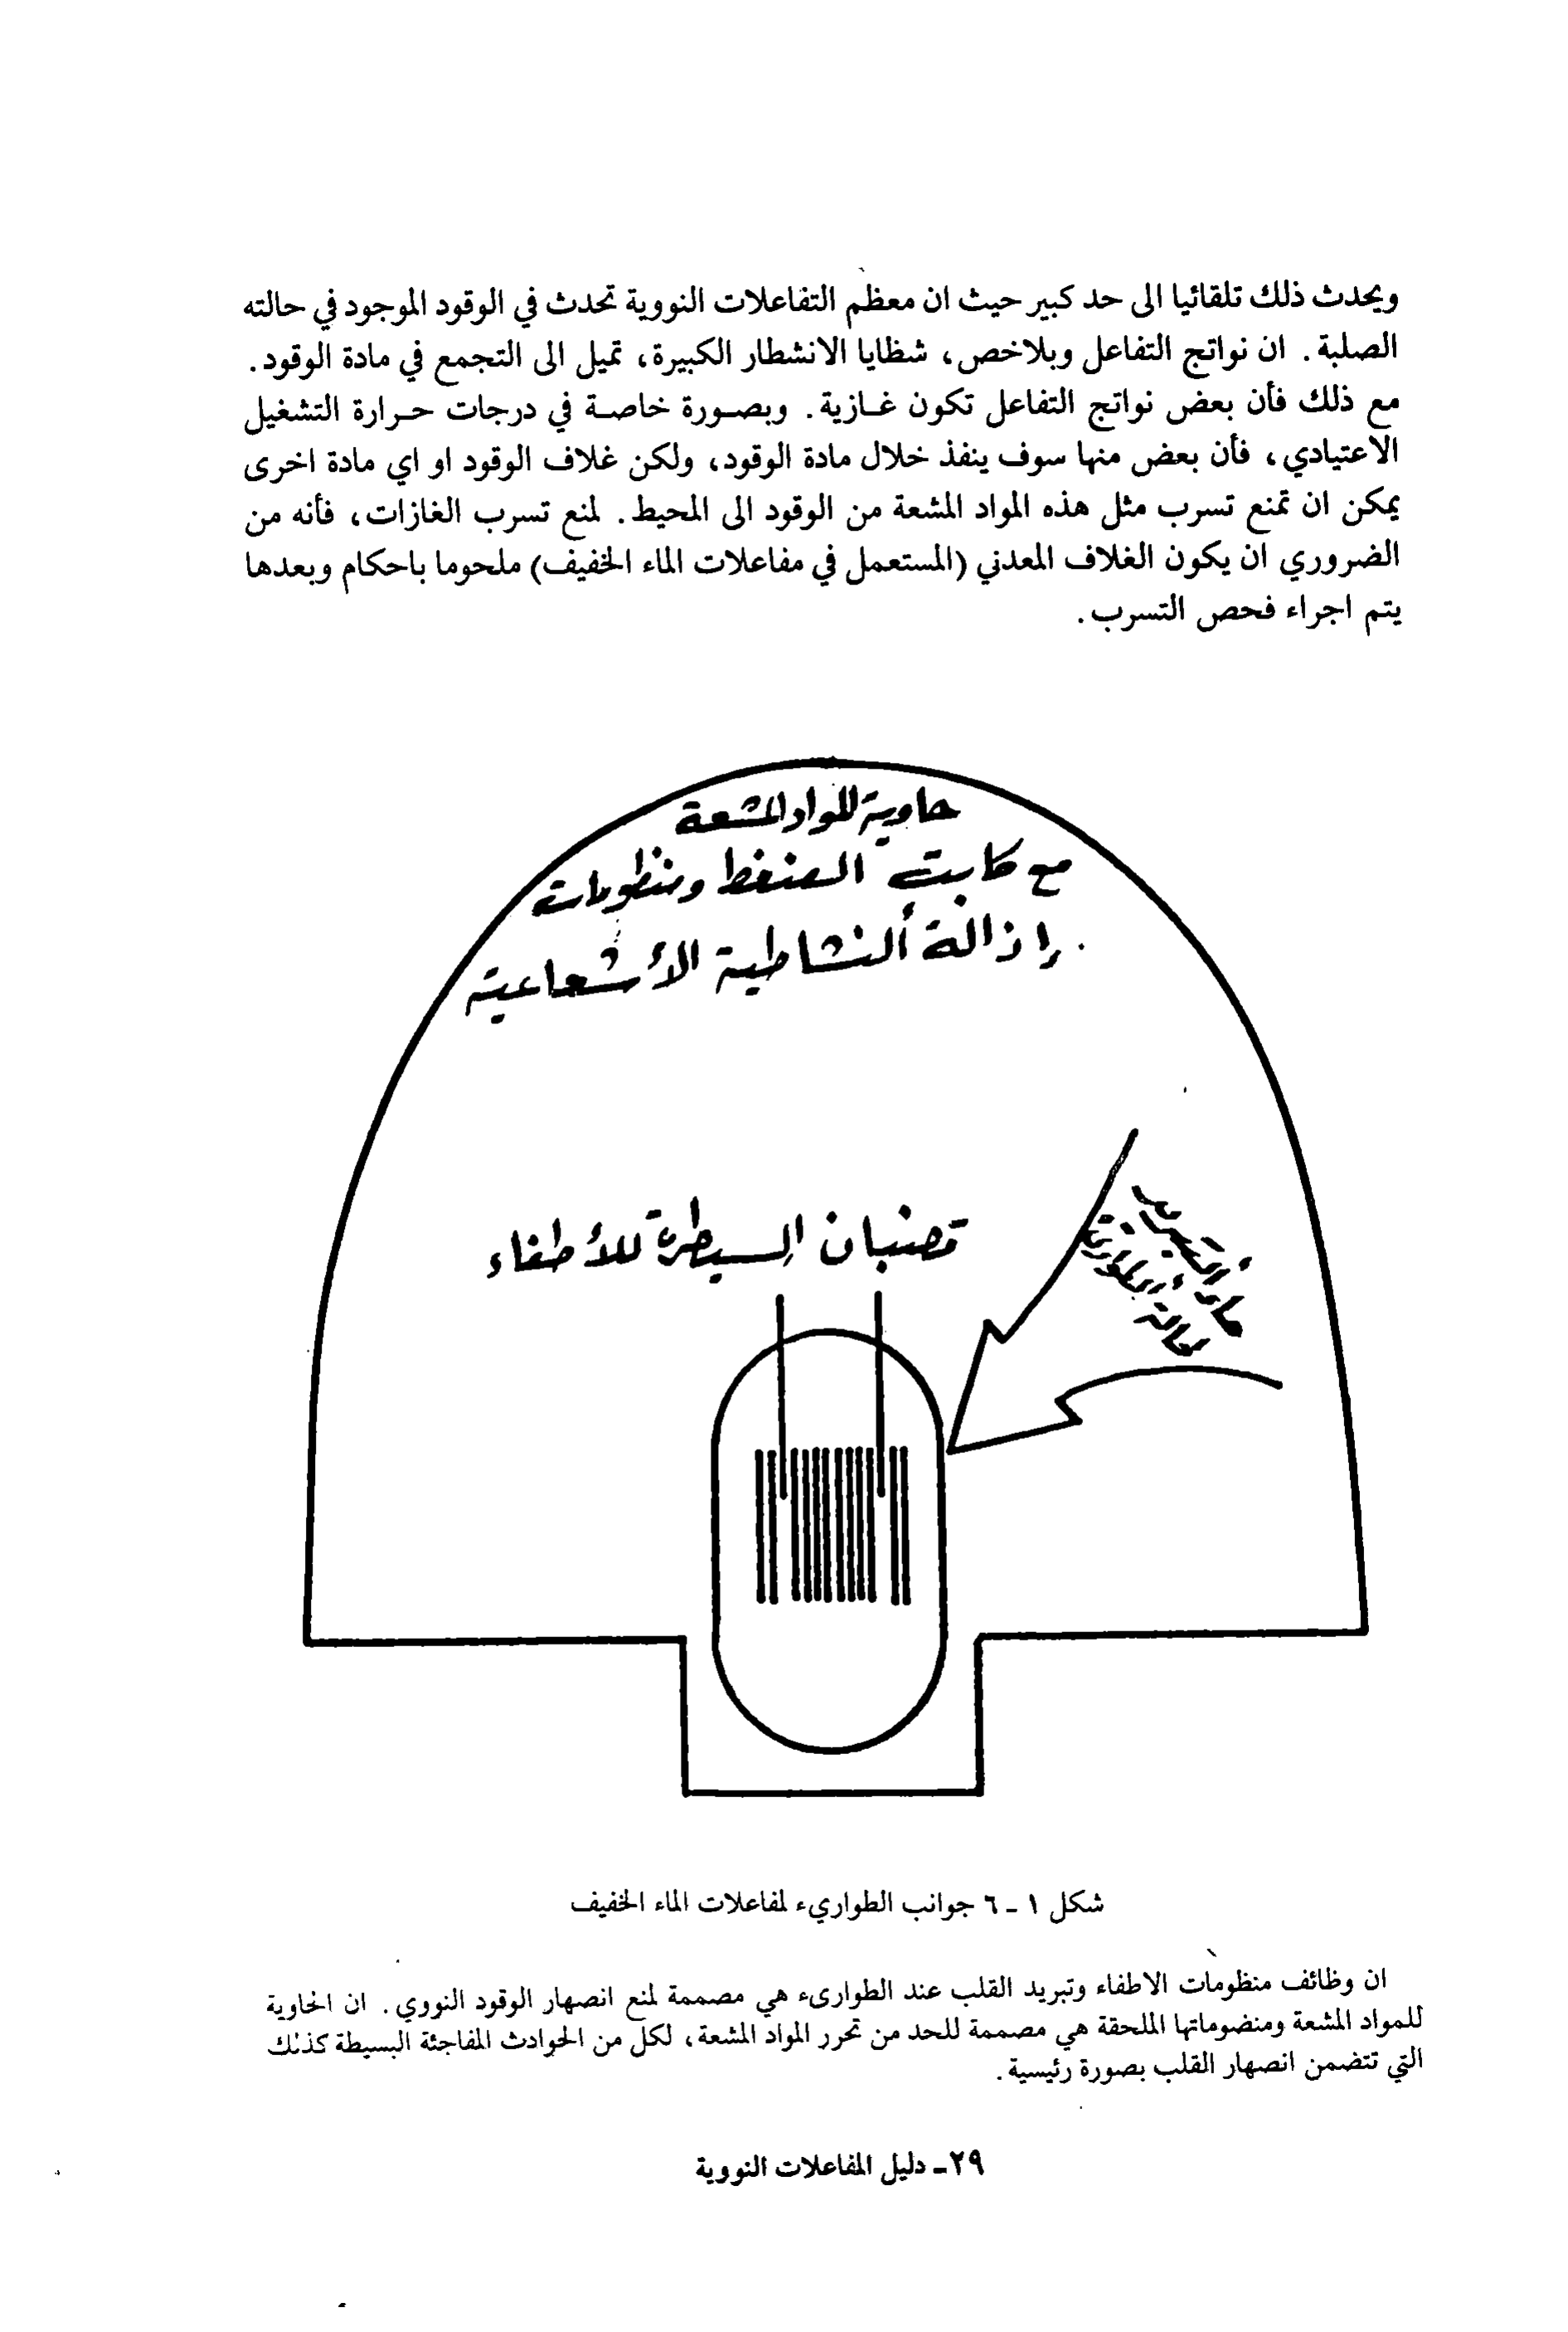 ويحدث ذلك تلقائيا الى حد كبير حيث ان معظم التفاعلات النووية تحدث في الوقود الموجود في حالته
الصلبة. ان نواتج التفاعل وبلاخص، شظايا الانشطار الكبيرة، تميل الى التجمع في مادة الوقود.
مع ذلك فأن بعض نواتج التفاعل تكون غازية. وبصورة خاصة في درجات حرارة التشغيل
الاعتيادي، فأن بعض منها سوف ينفذ خلال مادة الوقود، ولكن غلاف الوقود او اي مادة اخرى
يمكن ان تمنع تسرب مثل هذه المواد المشعة من الوقود الى المحيط. لمنع تسرب الغازات، فأنه من
الضروري ان يكون الغلاف المعدني (المستعمل في مفاعلات الماء الخفيف) ملحوما باحكام وبعدها
يتم اجراء فحص التسرب.
حاوية للمواد المشعة
مع كابت الضغط ومنظومات
ازالة النشاطية الأشعاعية
قضبان السيطرة للأطفاء
ماء التبريد
لحالة الطوارئ
شكل ١ - ٦ جوانب الطواريء لمفاعلات الماء الخفيف
ان وظائف منظومات الاطفاء وتبريد القلب عند الطوارىء هي مصممة لمنع انصهار الوقود النووي. ان الحاوية
للمواد المشعة ومنضوماتها الملحقة هي مصممة للحد من تحرر المواد المشعة، لكل من الحوادث المفاجئة البسيطة كذلك
التي تتضمن انصهار القلب بصورة رئيسية.
٢٩- دليل المفاعلات النووية